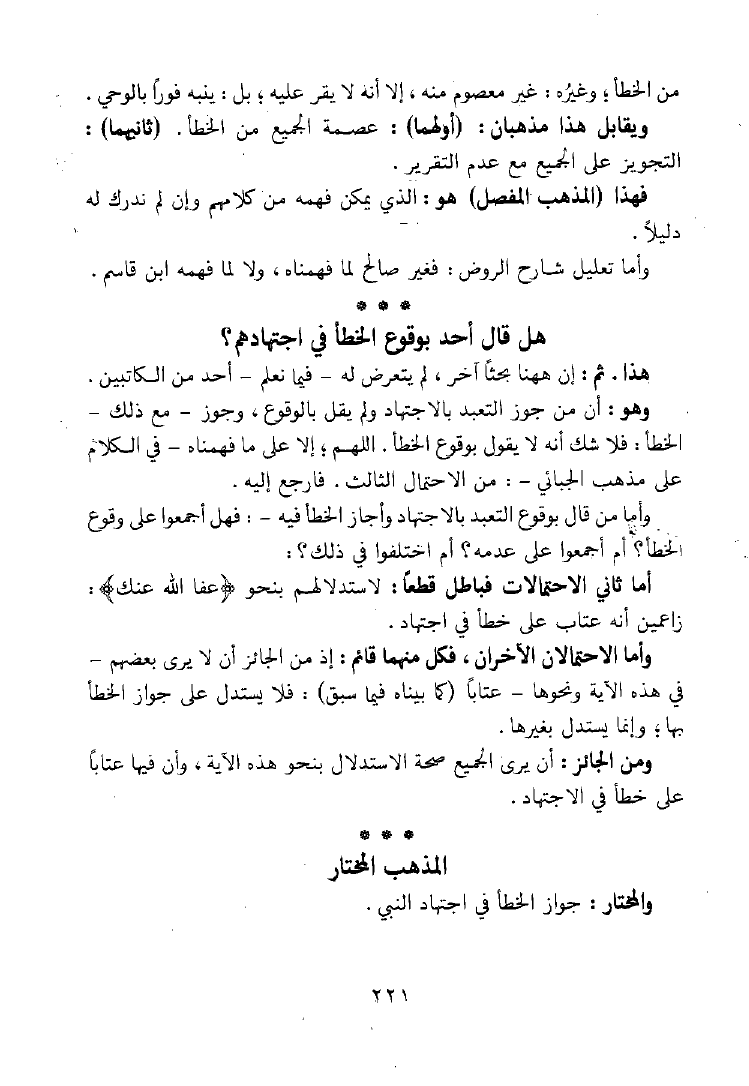 من الخطأ؛ وغيرُه : غير معصوم منه ، إلا أنه لا يقر عليه ؛ بل : ينبه فوراً بالوحي .
ويقابل هذا مذهبان : (أولهما) : عصمة الجميع من الخطأ . (ثانيهما) :
التجويز على الجميع مع عدم التقرير .
فهذا (المذهب المفصل) هو : الذي يمكن فهمه من كلامهم وإن لم ندرك له
دليلاً .
وأما تعليل شارح الروض : فغير صالح لما فهمناه ، ولا لما فهمه ابن قاسم .
* * *
هل قال أحد بوقوع الخطأ في اجتهادهم؟
هذا . ثم : إن ههنا بحثاً آخر ، لم يتعرض له – فيما نعلم – أحد من الكاتبين .
وهو : أن من جوز التعبد بالاجتهاد ولم يقل بالوقوع ، وجوز – مع ذلك –
الخطأ : فلا شك أنه لا يقول بوقوع الخطأ . اللهم ؛ إلا على ما فهمناه – في الكلام
على مذهب الجبائي – : من الاحتمال الثالث . فارجع إليه .
وأما من قال بوقوع التعبد بالاجتهاد وأجاز الخطأ فيه – : فهل أجمعوا على وقوع
الخطأ؟ أم أجمعوا على عدمه؟ أم اختلفوا في ذلك؟ :
أما ثاني الاحتمالات فباطل قطعاً : لاستدلالهم بنحو ﴿عفا الله عنك﴾ :
زاعمين أنه عتاب على خطأ في اجتهاد .
وأما الاحتمالان الآخران ، فكل منهما قائم : إذ من الجائز أن لا يرى بعضهم –
في هذه الآية ونحوها – عتاباً (كما بيناه فيما سبق) : فلا يستدل على جواز الخطأ
بها ؛ وإنما يستدل بغيرها .
ومن الجائز : أن يرى الجميع صحة الاستدلال بنحو هذه الآية ، وأن فيها عتاباً
على خطأ في الاجتهاد .
* * *
المذهب المختار
والمختار : جواز الخطأ في اجتهاد النبي .
٢٢١